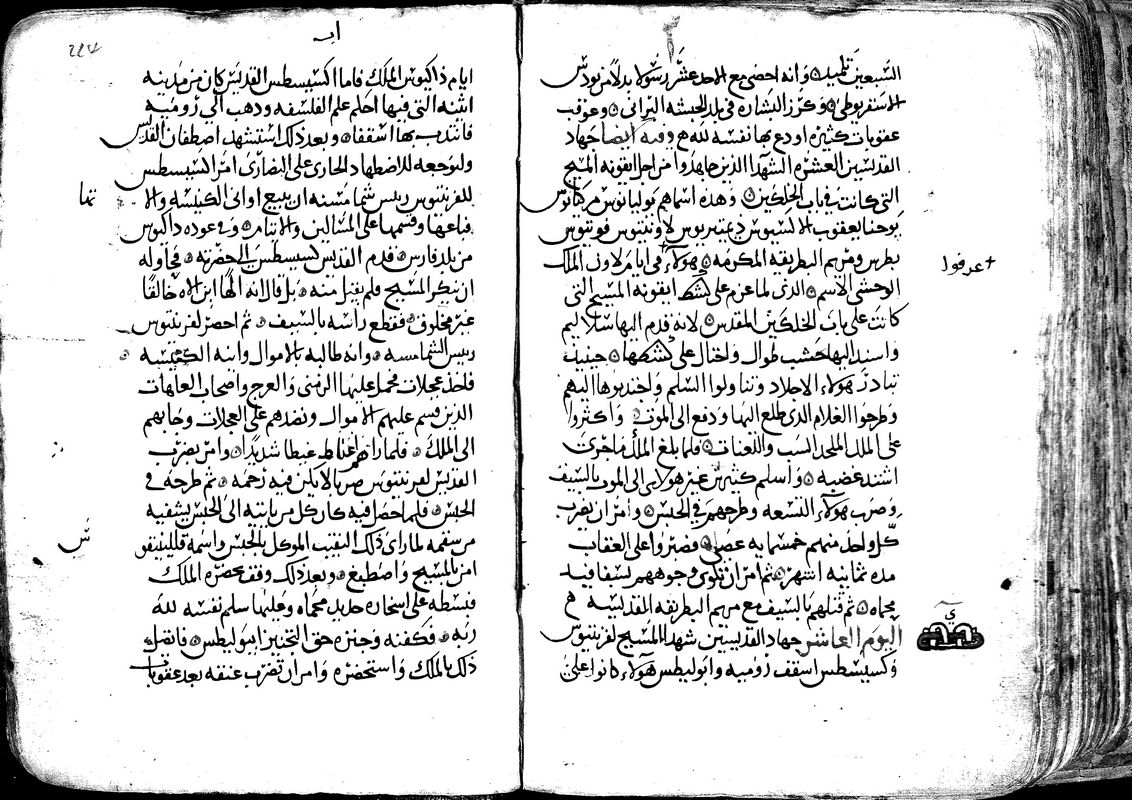 السبعين تلميذ وانه احصي مع الاحد عشر رسولا بدلا من يودس
الاسخريوطي وكرز البشاره في بلد الحبشه البراني وعوقب
عقوبات كثيره اودع بها نفسه لله وفيه ايضا جهاد
القديسين العشره الشهدا الذين جاهدوا من اجل ايقونه المسيح
التي كانت في باب الخلكين وهذه اسماهم يوليانوس مركيانوس
يوحنا يعقوب الاكسيوس ديمتريوس لاونتيوس فوتيوس
بطرس ومريم البطريقه المكرمه هولاء في ايام لاون الملك
الوحشي الاسم الذي لما عزم على كشط ايقونه المسيح التي
كانت على باب الخلكين المقدس لانه قدم اليها سلاليم
واسند اليها خشب طوال واحتال على كشطها حينيذ
تبادر هولاء الاجلاد وتناولوا السلم واجتذبوها اليهم
وطرحوا الغلام الذي طلع اليها ودفع الى الموت واكثروا
على الملك الملحد السب واللعنات فلما بلغ الملك ما جرى
اشتد غضبه واسلم كثيرين غير هولاء الى الموت بالسيف
وضرب هولاء التسعه وطرحهم في الحبس وامر ان يضرب
كل واحد منهم خمسمايه عصى فصبروا على العقاب
مده ثمانيه اشهر ثم امر ان تكوى وجوههم بسفافيد
محماه ثم قتلهم بالسيف مع مريم البطريقه القديسه
اليوم العاشر جهاد القديسين شهدا المسيح لفرنتيوس
وكسيسطس اسقف روميه وابوليطس هولاء كانوا على
عرفوا
ي
اب
ايام ذاكيوس الملك فاما اكسيسطس القديس كان من مدينه
اثينه التي فيها احكم علم الفلسفه وذهب الى روميه
فانتدب بها اسقفا وبعد ذلك استشهد اصطفان القديس
ولتوجعه للاضطهاد الجاري على النصارى امر اكسيسطس
للفرنتيوس ريس شمامسته ان يبيع اواني الكنيسه والا
فباعها وقسمها على المساكين والايتام وفي عوده داكيوس
من بلد فارس قدم القديس كسيسطس الى حضرته فحاوله
ان ينكر المسيح فلم يقبل منه بل قال انه الها ابن الاه خالقا
غير مخلوق فقطع راسه بالسيف ثم احضر لفرنتيوس
ريس الشمامسه وانه طالبه بالاموال وانيه الكنيسه
فاخذ عجلات محمل عليها الزمنى والعرج واصحاب العاهات
الذين قسم عليهم الاموال ونضدهم على العجلات وجابهم
الى الملك فلما راهم اغتاظ غيظا شديدا وامر بضرب
القديس لفرنتيوس ضربا لا يكن فيه رحمه ثم طرحه في
الحبس فلما حصل فيه كان كل من ياتيه الى الحبس يشفيه
من سقمه لما راى ذلك النقيب الموكل بالحبس واسمه قلينيقو
امن بالمسيح واصطبغ وبعد ذلك وقف بحضره الملك
فبسطه على اسخاره حديد محماه وعليها سلم نفسه لله
ربه فكفنه وجنزه حق التجنيز ايبوليطس فاتصل
ذلك بالملك واستحضره وامر ان تضرب عنقه بعد عقوبات
تما